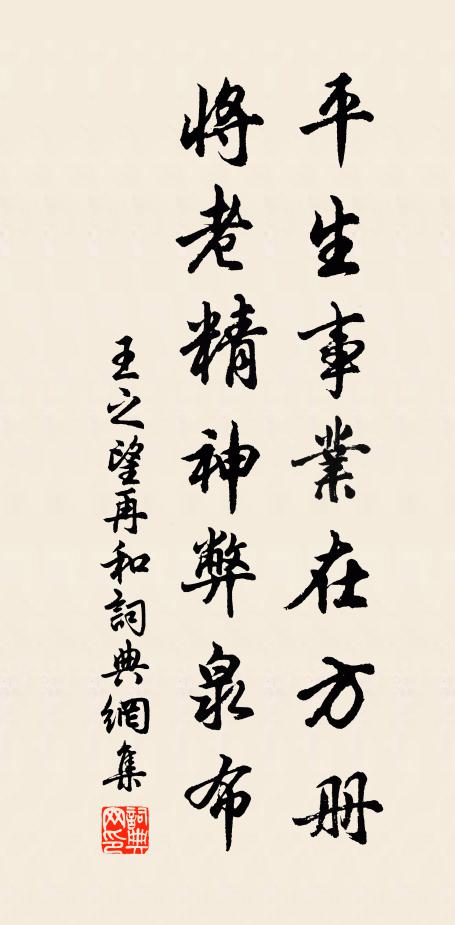 平生事業在方册
將老精神弊泉布
王之望再和詞典網集
詞典网印